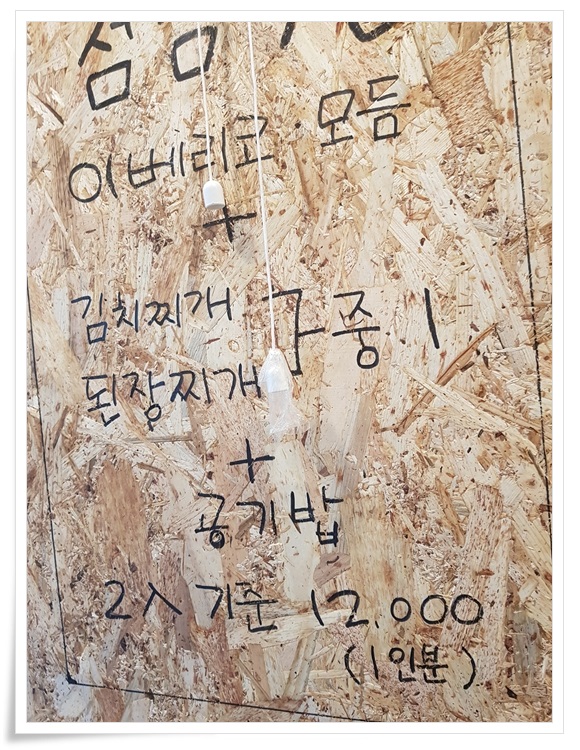 점심
이베리코 모듬
+
김치찌개
된장찌개 } 중 1
+
공기밥
2人 기준 12,000
(1인분)